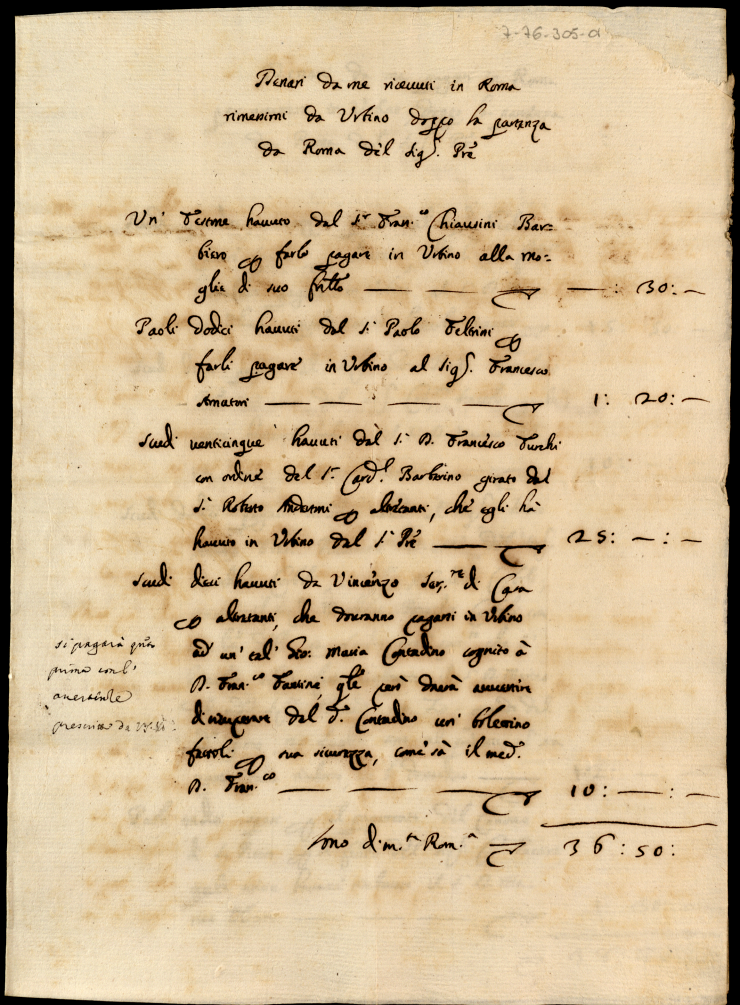 7-76-305-01
Denari da me riceuuti in Roma
rimessimi da Vrbino doppo la partenza
da Roma del Sigr. Prē
Un' Testone hauuto dal Sr. Fran.co Chiausini Bar=
biero farlo pagare in Vrbino alla mo=
glie di suo frēllo — : 30: —
Paoli dodici hauuti dal Sr Paolo Feltrini
farli pagare in Vrbino al Sigr. Francesco
Amatori — 1: 20: —
Scudi venticinque hauuti dal Sr. D. Francesco
con ordine del Sr. Card.l Barberino girato dal
Sr. Roberto altretanti, che egli hà
hauuto in Vrbino dal Sr Prē — 25: — : —
Scudi dieci hauuti da Vincenzo Ser.re di Casa
altretanti, che douranno pagarsi in Vrbino
ad un' tal' Gio: Maria Contadino cognito à
D. Fran.co Fantini, però auuertire
di ricuperare dal d.o Contadino un' bolettino
fattoli sua sicurezza, come sà il med.o
D. Fran.co — 10: — : —
Sono di m.ta Rom.a — 36: 50:
si pagarà
prima con l'
auertenze
prescritte da